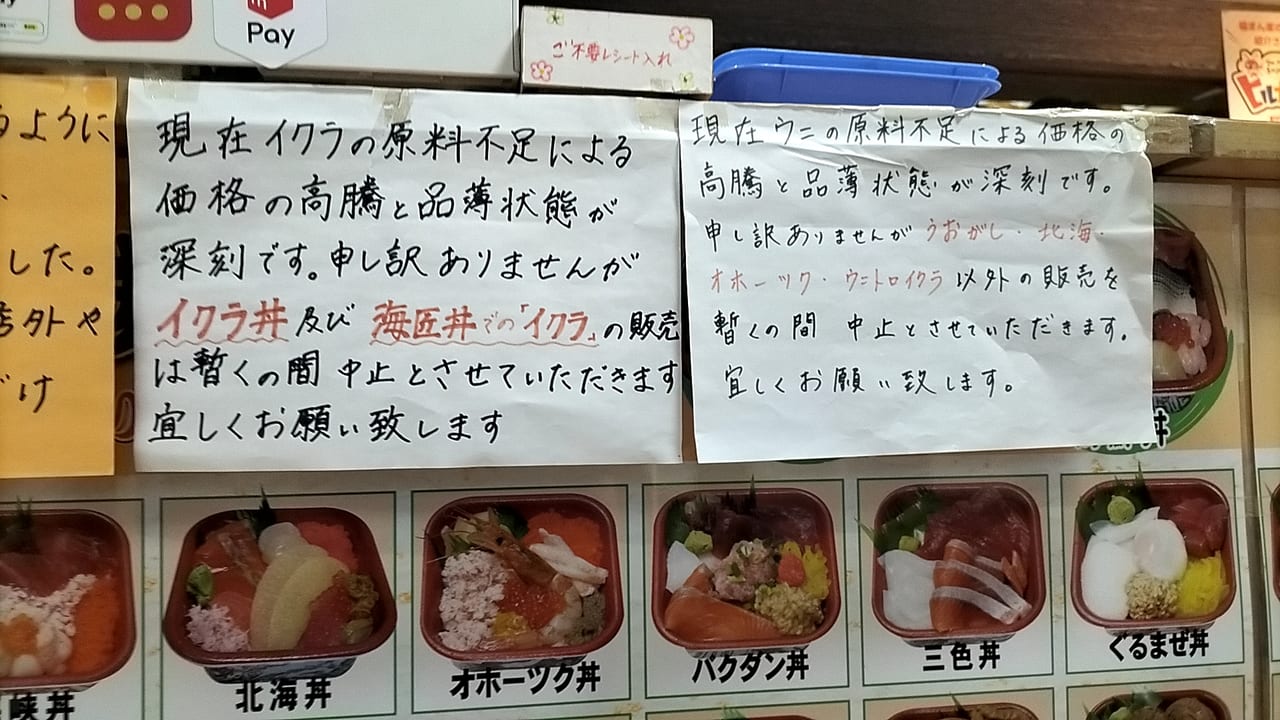 Pay
ご不要レシート入れ
るように
した。
外や
だけ
現在イクラの原料不足による
価格の高騰と品薄状態が
深刻です。申し訳ありませんが
イクラ丼及び海匠丼での「イクラ」の販売
は暫くの間中止とさせていただきます
宜しくお願い致します
現在ウニの原料不足による価格の
高騰と品薄状態が深刻です。
申し訳ありませんがうおがし・北海・
オホーツク・ウニトロイクラ以外の販売を
暫くの間 中止とさせていただきます。
宜しくお願い致します。
丼
峡丼
北海丼
オホーツク丼
バクダン丼
三色丼
ぐるまぜ丼